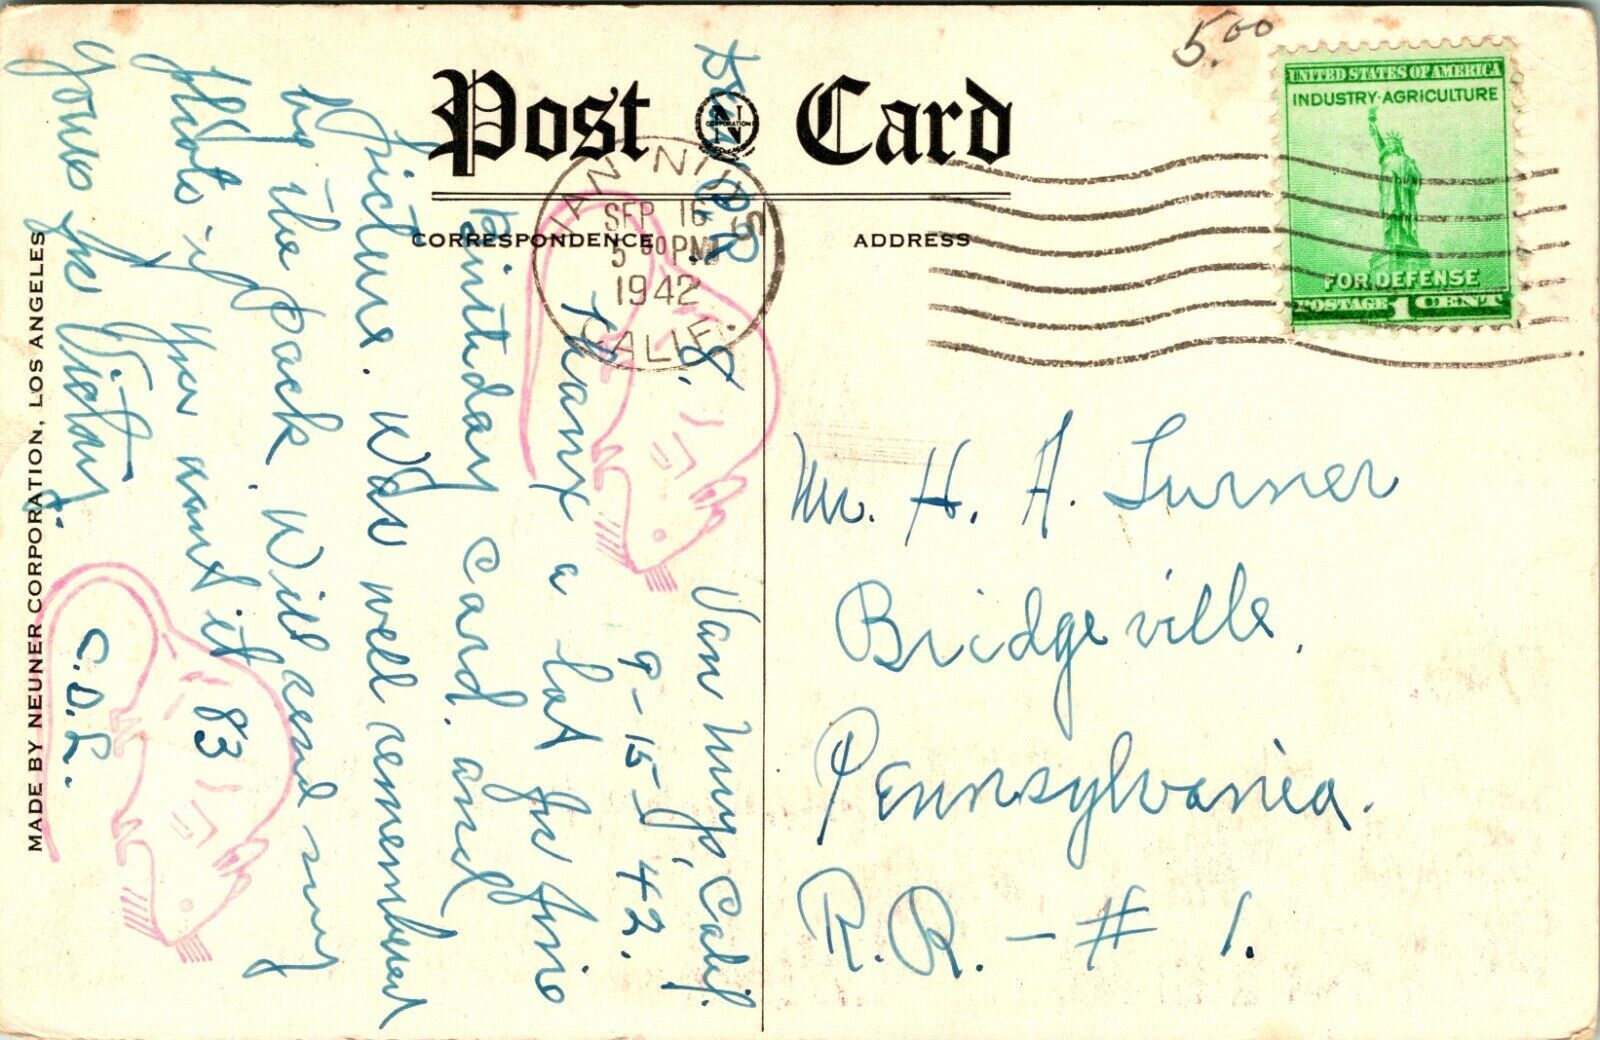 Post Card
N
CORPORATION
CORRESPONDENCE
ADDRESS
5.00
UNITED STATES OF AMERICA
INDUSTRY·AGRICULTURE
FOR DEFENSE
POSTAGE 1 CENT
VAN NUYS
SEP 16
5 00 PM
1942
CALIF.
Mr. H. A. Turner
Bridgeville,
Pennsylvania.
R.R. - # 1.
Van Nuys, Calif.
9-15-'42.
Dear R.R. 8.
Thanx a lot for fine
Birthday card. and
picture. Was well remembered
by the pack. Will send my
photo if you want it 83
Yours for Victory.
C.D.L.
MADE BY NEUNER CORPORATION, LOS ANGELES